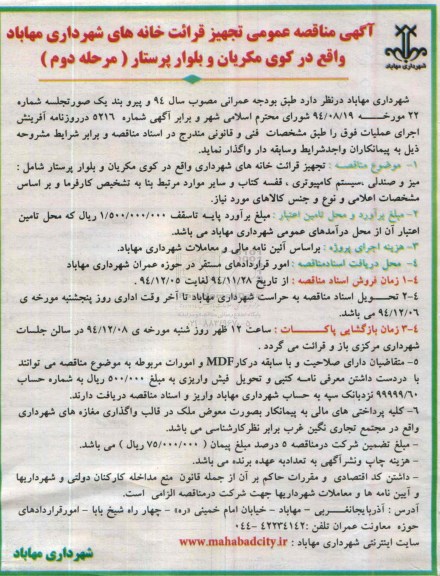 آگهی مناقصه عمومی تجهیز قرائت خانه های شهرداری مهاباد
واقع در کوی مکریان و بلوار پرستار ( مرحله دوم )
شهرداری مهاباد
شهرداری مهاباد درنظر دارد طبق بودجه عمرانی مصوب سال ۹۴ و پیرو بند یک صورتجلسه شماره
۲۲ مورخــه ۹۴/۰۸/۱۹ شورای محترم اسلامی شهر و برابر آگهی شماره ۵۲۱۶ درروزنامه آفرینش
اجرای عملیات فوق را طبق مشخصات فنی و قانونی مندرج در اسناد مناقصه و برابر شرایط مشروحه
ذیل به پیمانکاران واجدشرایط وسابقه دار واگذار نماید.
۱- موضوع مناقصه : تجهیز قرائت خانه های شهرداری واقع در کوی مکریان و بلوار پرستار شامل :
میز و صندلی ،سیستم کامپیوتری ، قفسه کتاب و سایر موارد مرتبط بنا به تشخیص کارفرما و بر اساس
مشخصات اعلامی و نوع و جنس کالاهای مورد نیاز.
۲- مبلغ برآورد و محل تامین اعتبار : مبلغ برآورد پایـه تاسقف ۱/۵۰۰/۰۰۰/۰۰۰ ریال که محل تامین
اعتبار آن از محل درآمدهای عمومی شهرداری مهاباد می باشد.
۳- هزینه اجرای پروژه : براساس آئین نامه مالی و معاملات شهرداری مهاباد.
۴- محل دریافت اسنادمناقصه : امور قراردادهای مستقر در حوزه عمران شهرداری مهاباد
۴-۱ زمان فروش اسناد مناقصه : از تاریخ ۹۴/۱۱/۲۸ لغایت ۹۴/۱۲/۰۵ .
۴-۲ تحویـل اسناد مناقصه به حراست شهرداری مهاباد تا آخر وقت اداری روز پنجشنبه مورخه ی
۹۴/۱۲/۰۶ می باشد.
۴-۳ زمان بازگشایی پاکـــات : ساعت ۱۲ ظهر روز شنبه مورخه ی ۹۴/۱۲/۰۸ در سالن جلسات
شهرداری مرکزی باز و قرائت می گردد .
۵- متقاضیان دارای صلاحیت و با سابقه درکار MDF و امورات مربوطه به موضوع مناقصه می توانند
با دردست داشتن معرفی نامـه کتبی و تحویل فیش واریزی به مبلغ ۵۰۰/۰۰۰ ریال به شماره حساب
۹۹۹۹۹/۶۰ نزدبانک سپه به حساب شهرداری مهاباد واریز و اسناد مناقصه دریافت دارند.
۶- کلیه پرداختی های مالی به پیمانکار بصورت معوض ملک در قالب واگذاری مغازه های شهرداری
واقع در مجتمع تجاری نگین غرب برابر نظرکارشناسی می باشد.
- مبلغ تضمین شرکت درمناقصه ۵ درصد مبلغ پیمان ( ۷۵/۰۰۰/۰۰۰ ریال ) می باشد.
- هزینه چاپ ونشرآگهی به تعدادبه عهده برنده می باشد.
- داشتن کد اقتصادی و مقررات حاکم بر آن از جمله قانون منع مداخله کارکنان دولتی و شهرداریها
و آیین نامه ها و معاملات شهرداریها جهت شرکت درمناقصه الزامی است.
آدرس : آذربایجانغـربی - مهاباد - خیابان امام خمینی «ره» - چهار راه شیخ بابا - امورقراردادهای
حوزه معاونت عمران تلفن :۴۲۲۳۴۱۴۲ -۰۴۴
سایت اینترنتی شهرداری مهاباد : www.mahabadcity.ir
شهرداری مهاباد